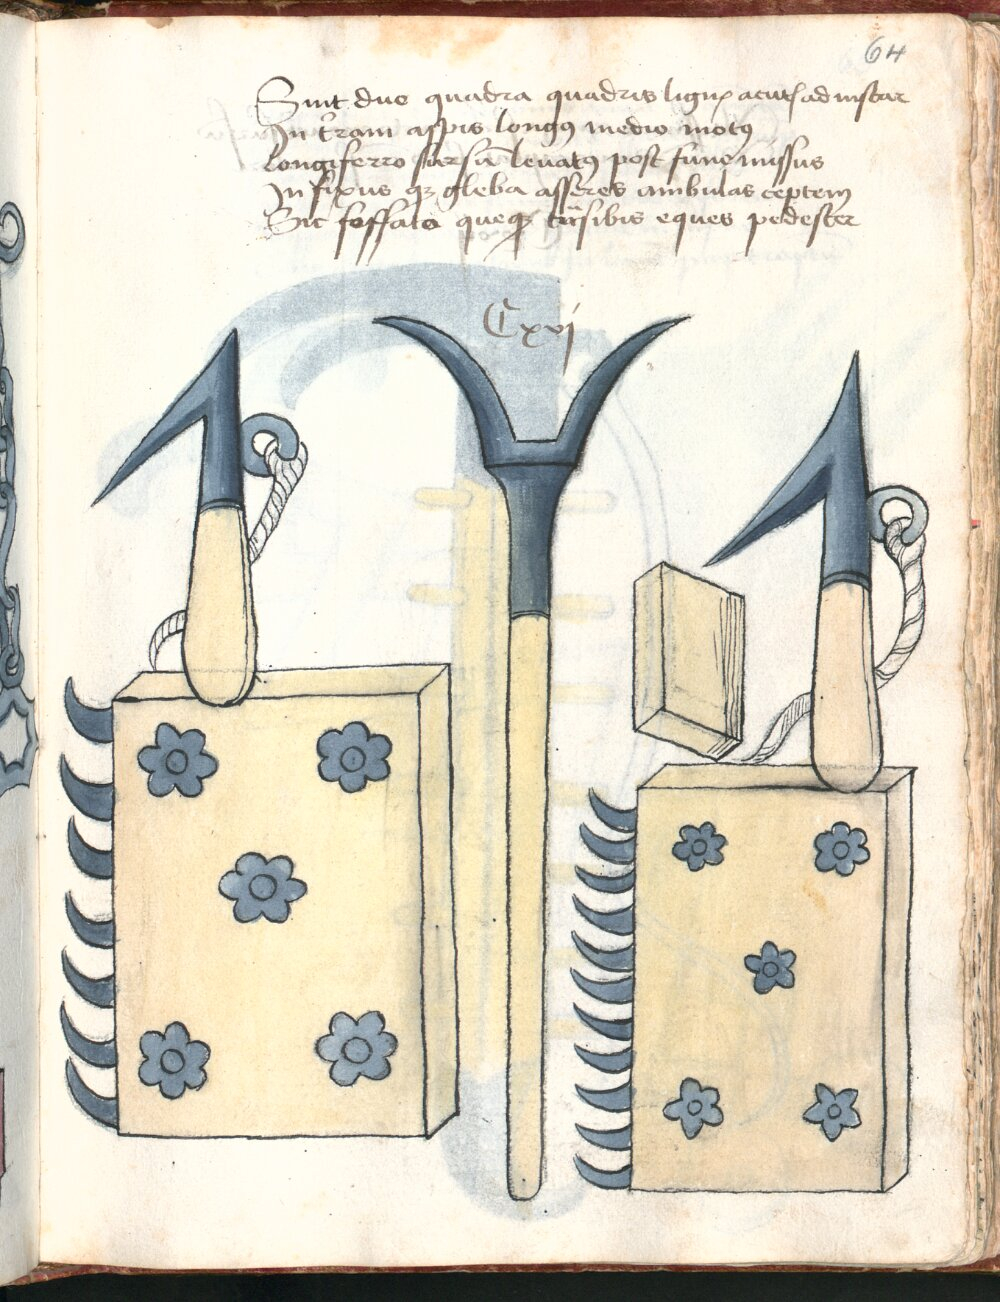 64
Sint duo quadra quadris lignꝭ acutꝭ ad instar
In t̄ram aspis longꝰ medio motꝰ
Longiferro sursū leuatꝰ post fune missus
In fixus qꝫ gleba asseres ambulas ceptem
Sic fossata queqꝫ trāsibis eques pedester
Cxvj